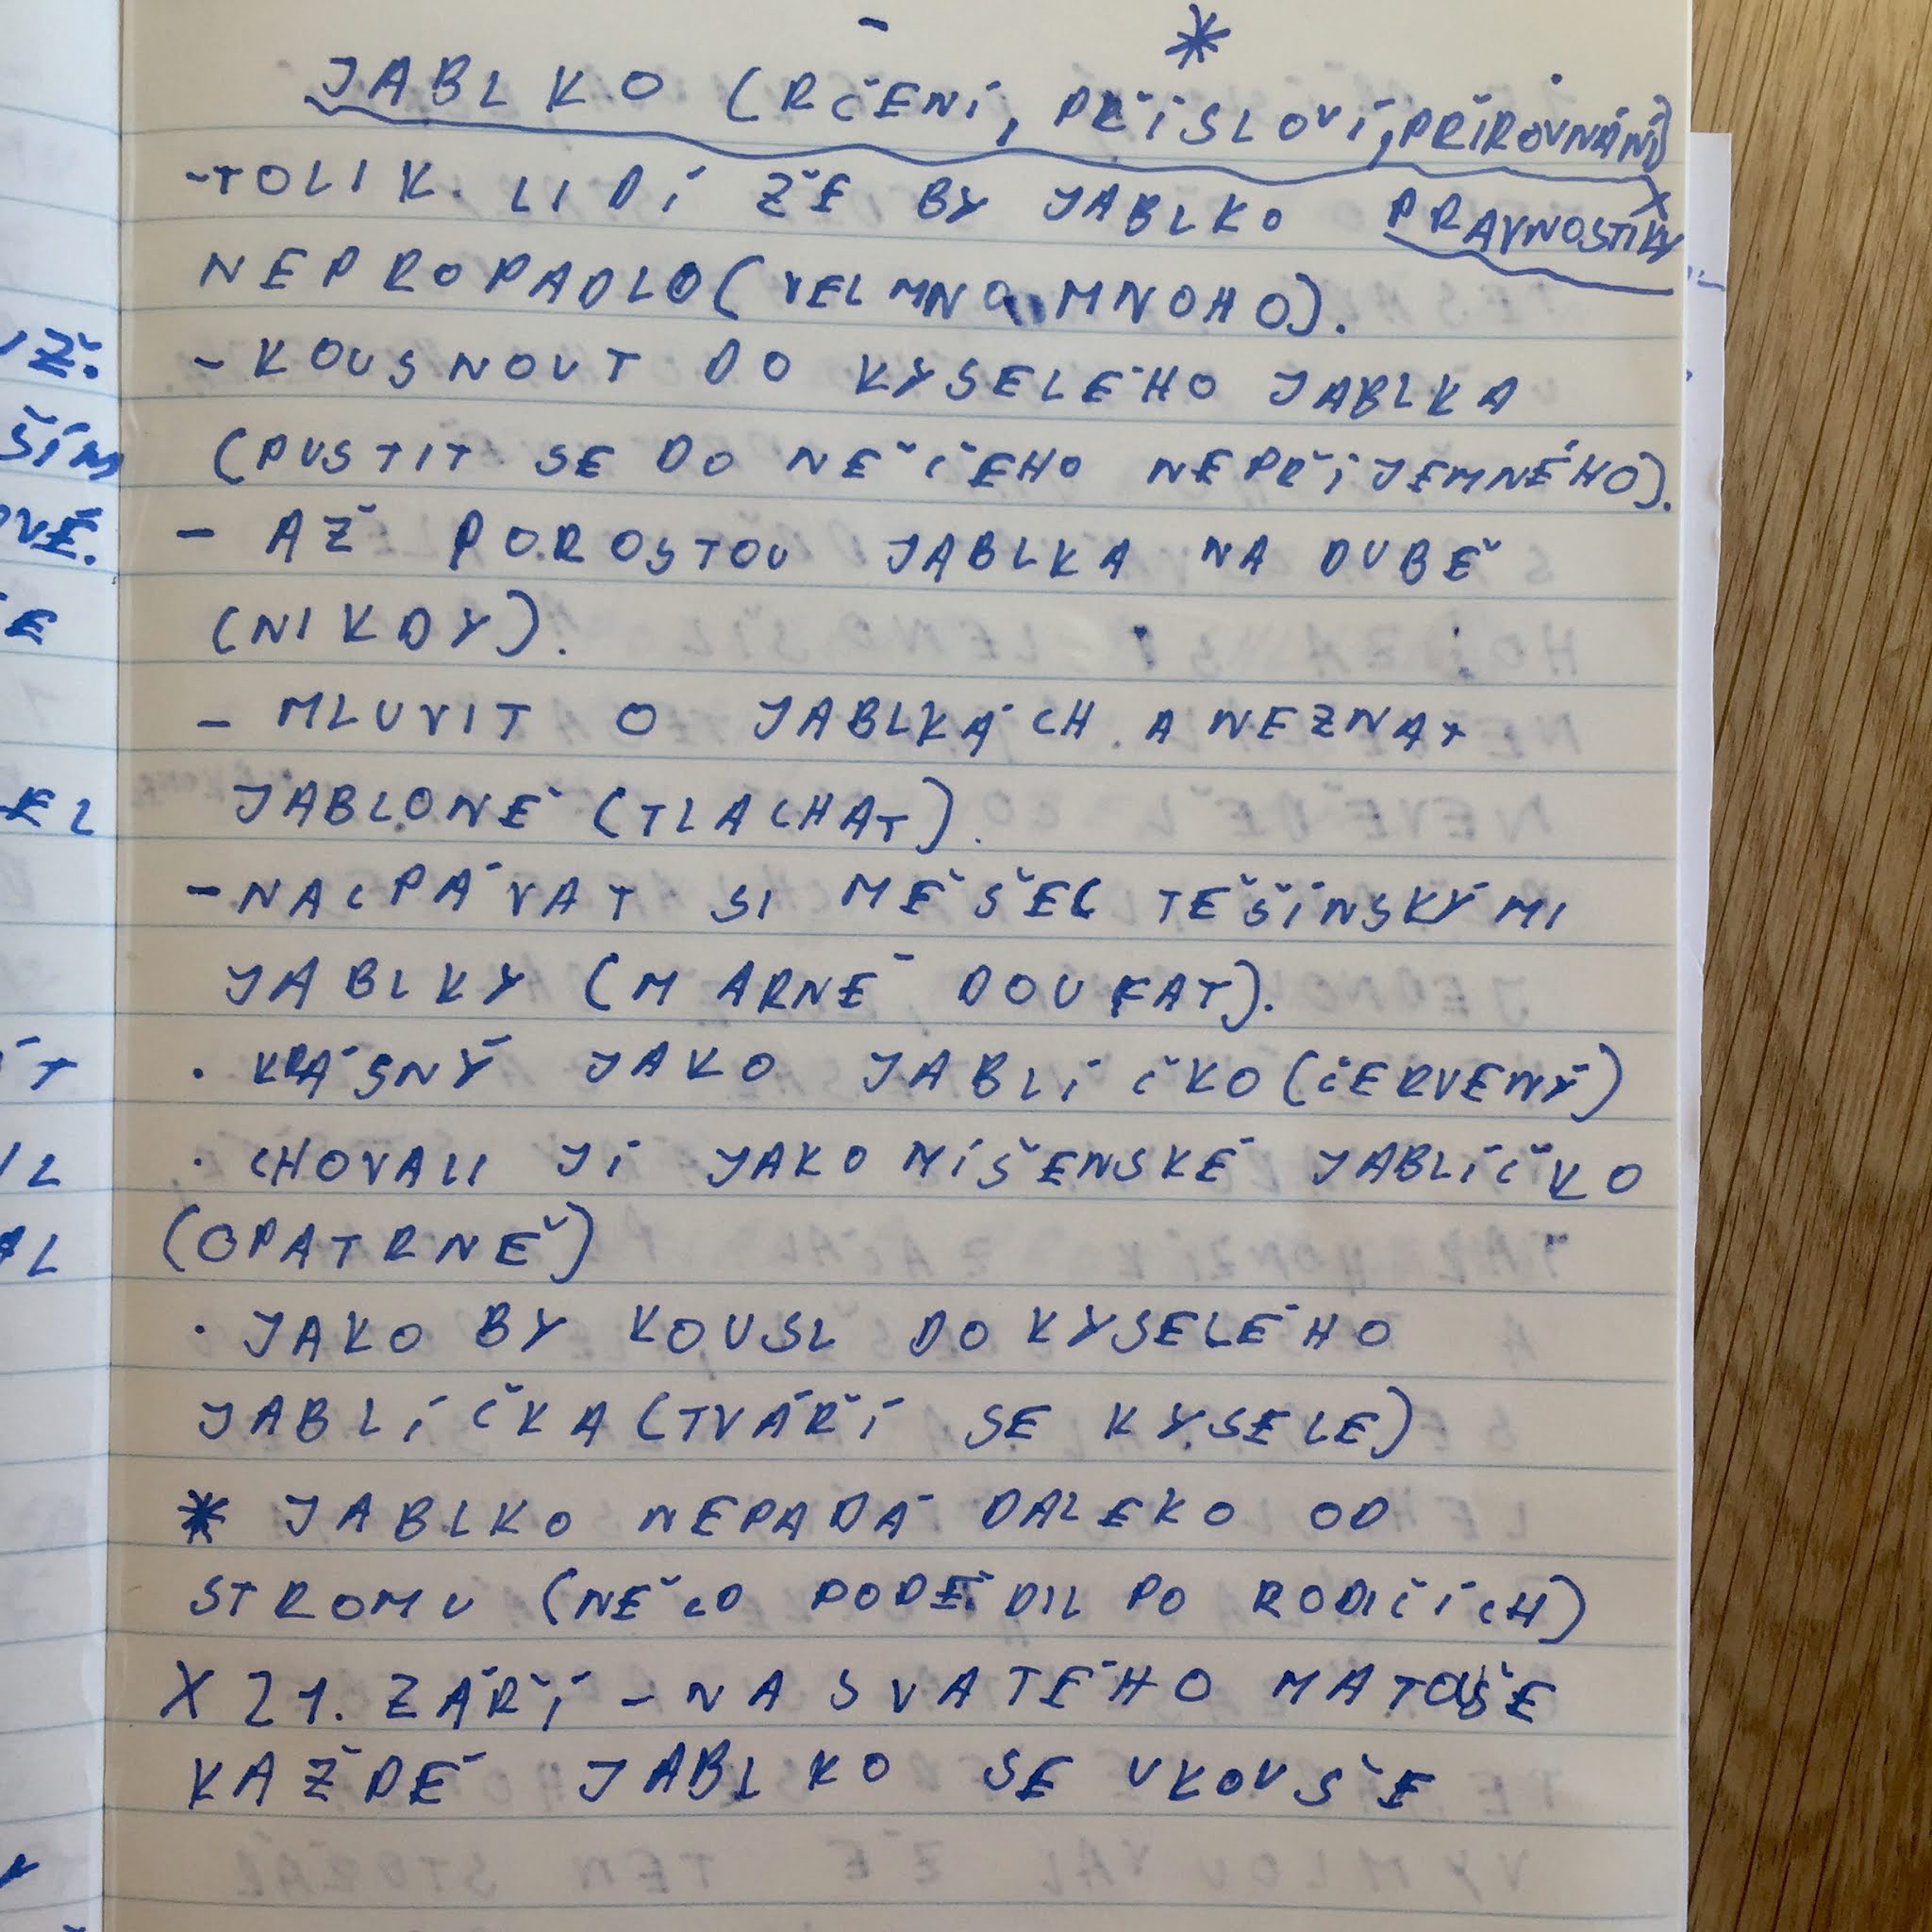 - *
JABLKO (RČENÍ, PŘÍSLOVÍ, PŘIROVNÁNÍ)
-TOLIK LIDÍ ŽE BY JABLKO X PRAVNOSTIKY
NEPROPADLO (VELMNO MNOHO).
- KOUSNOUT DO KYSELÉHO JABLKA
(PUSTIT SE DO NĚČEHO NEPŘÍJEMNÉHO).
- AŽ POROSTOU JABLKA NA DUBĚ
(NIKDY).
- MLUVIT O JABLKÁCH A NEZNAT
JABLONĚ (TLACHAT).
- NACPÁVAT SI MĚŠEC TĚŠÍNSKÝMI
JABLKY (MARNĚ DOUFAT).
. KRÁSNÝ JAKO JABLÍČKO (ČERVENÝ)
. CHOVALI JI JAKO MÍŠENSKÉ JABLÍČKO
(OPATRNĚ)
. JAKO BY KOUSL DO KYSELÉHO
JABLÍČKA (TVÁŘÍ SE KYSELE)
* JABLKO NEPADÁ DALEKO OD
STROMU (NĚCO PODĚDIL PO RODIČÍCH)
X 21. ZÁŘÍ - NA SVATÉHO MATOUŠE
KAŽDÉ JABLKO SE UKOUŠE
IŽ.
ŠÍM
OVĚ.
E
EL
ÍT
IL
AL